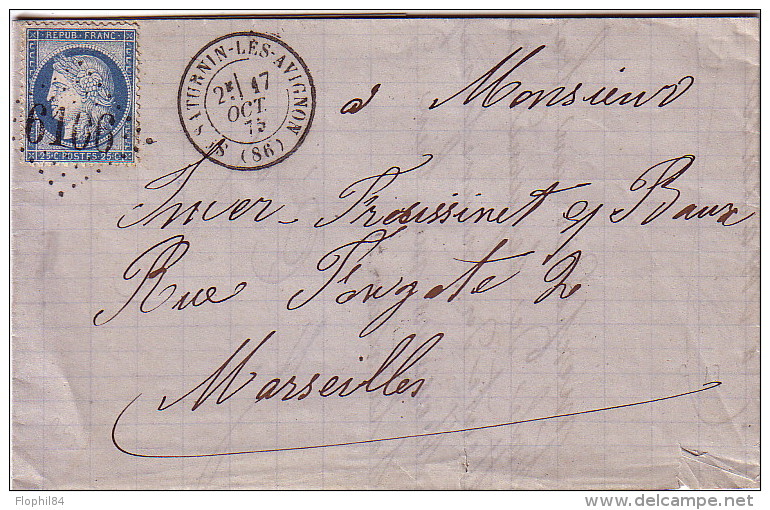 REPUB. FRANC.
25·C·POSTES·25·C
6166
ST SATURNIN-LÈS-AVIGNON
2E 17
OCT.
75
(86)
a Monsieur
Imer Fraissinet & Baux
Rue Fongate 2
Marseilles
Flophil84
www.delcampe.net